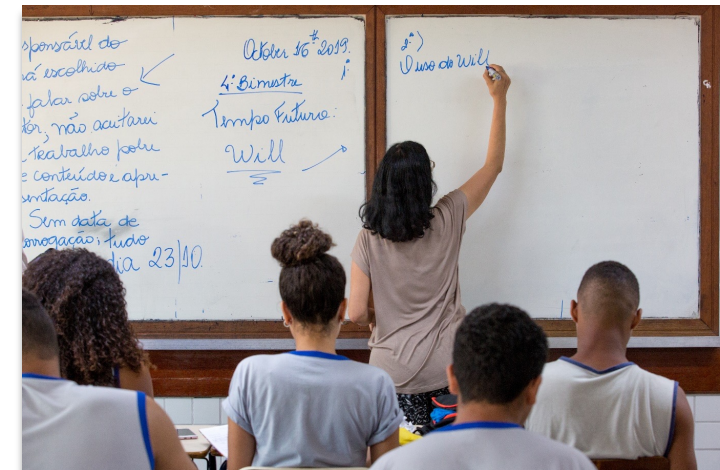 sponsável do
rá escolhido
falar sobre o
tor, não aceitarei
trabalho pobre
e conteúdo e apre-
sentação.
Sem data de
orrogação, tudo
dia 23/10.
October 16th 2019.
4º Bimestre
1º
Tempo Futuro:
Will
2º)
O uso do Will